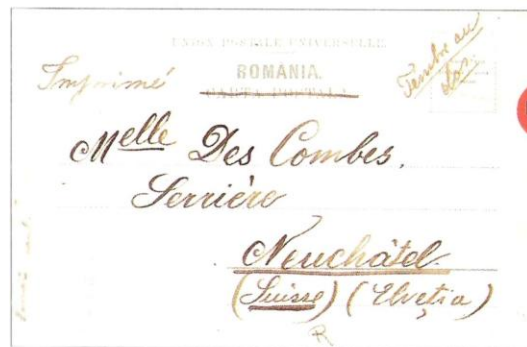 UNION POSTALE UNIVERSELLE
Imprimé
ROMANIA.
CARTA POSTALA
Timbre au
dos.
Melle Des Combes.
Serrière
Neuchâtel
(Suisse) (Elveția)